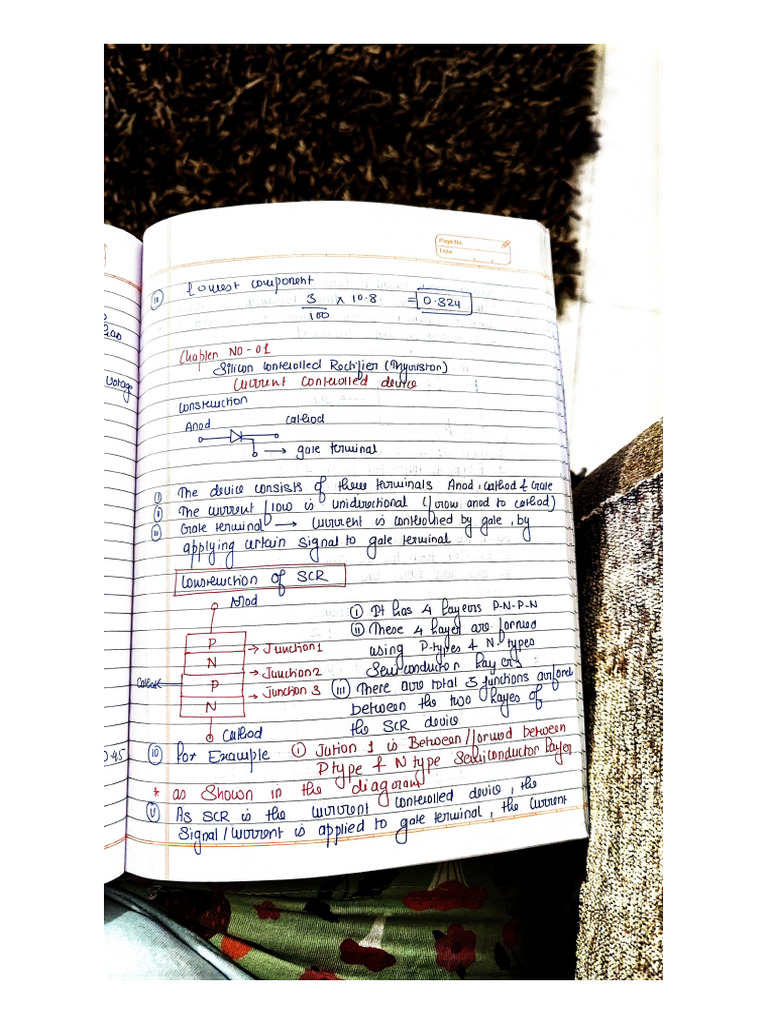 Page No.
Date
(iii) Lowest component
3/100 x 10.8 = 0.324
Chapter NO-01
Silicon Controlled Rectifier (Thyristor)
Current Controlled device
Construction
Anod Cathod
→ gate terminal
(i) The device consists of three terminals Anod, Cathod & Gate
(ii) The current flow is unidirectional (from anod to cathod)
(iii) Gate terminal → Current is controlled by gate, by
applying certain signal to gate terminal
Construction of SCR
Anod
P
N
P
N
→ Junction 1
→ Junction 2
→ Junction 3
Cathod
(i) It has 4 layers P-N-P-N
(ii) These 4 layer are formed
using P-types & N-types
Semiconductor layers
(iii) There are total 3 junctions are
between the two layers of
the SCR device
for Example (i) Jution 1 is Between/formed between
P type & N type Semiconductor layer
* as Shown in the diagram
(v) As SCR is the current controlled device, the
Signal/current is applied to gate terminal, the current
votage
0.45